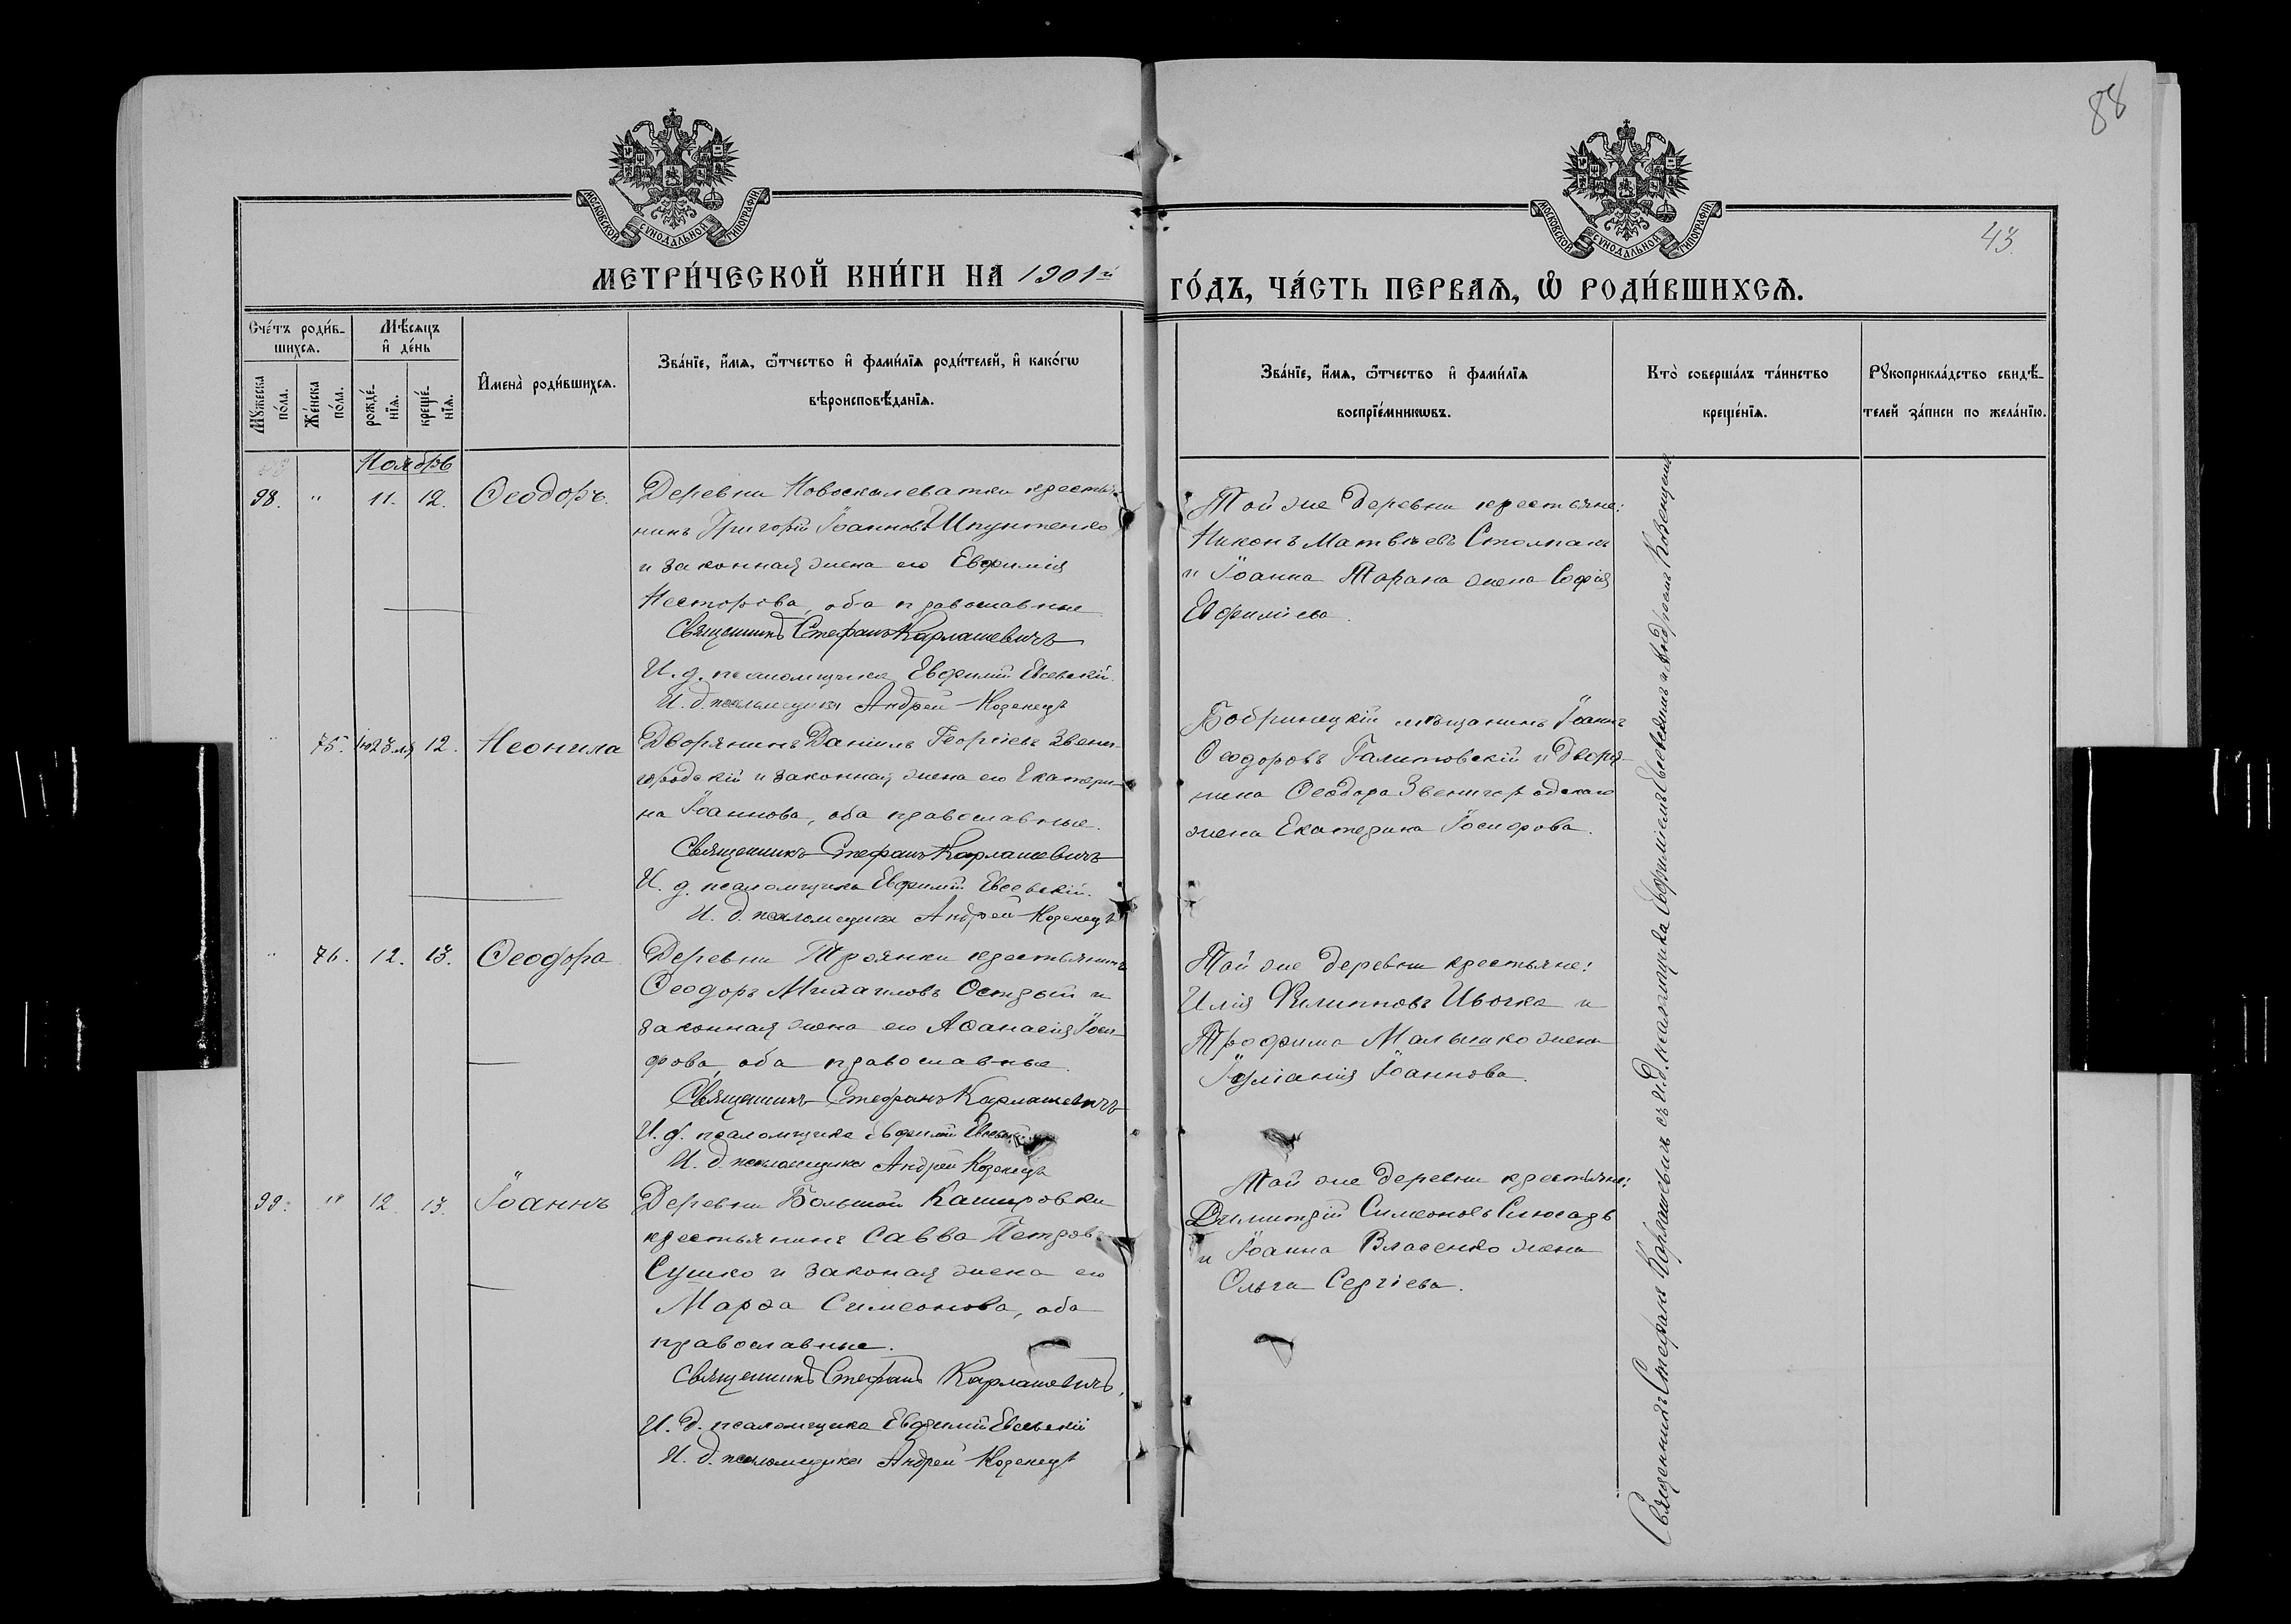 88
МОСКОВСКОЙ СѴНОДАЛЬНОЙ ТИПОГРАФІИ.
МОСКОВСКОЙ СѴНОДАЛЬНОЙ ТИПОГРАФІИ.
43.
МЕТРИ́ЧЕСКОЙ КНИ́ГИ НА 1901й
ГО́ДЪ, ЧА́СТЬ ПЕ́РВАѦ, Ѡ҆ РОДИ́ВШИХСѦ.
Сче́тъ роди́в-
шихсѧ.
Мѣ́сѧцъ
и҆ де́нь
Мꙋ́жеска
по́ла.
Же́нска
по́ла.
рожде́-
нїѧ.
креще́-
нїѧ.
И҆мена̀ роди́вшихсѧ.
Зва́нїе, и҆́мѧ, ѻ҆́тчество и҆ фами́лїѧ роди́телей, и҆ како́гѡ
вѣроисповѣ́данїѧ.
Зва́нїе, и҆́мѧ, ѻ҆́тчество и҆ фами́лїѧ
воспрїе́мникѡвъ.
Кто̀ соверша́лъ та́инство
креще́нїѧ.
Рꙋкоприкла́дство свидѣ́-
телей за́писи по жела́нїю.
Ноябрь
98. " 11. 12. Ѳеодоръ.
Деревни Новоскелеватки крестья-
нинъ Григорій Іоанновъ Шпунтенко
и законная жена его Евфимія
Несторова, оба православные
Священникъ Стефанъ Карлашевичъ
И. д. псаломщика Евфимій Евсевскій.
И. д. псаломщика Андрей Козенецъ
Той же деревни крестьяне:
Никонъ Матвѣевъ Столпакъ
и Іоанна Тарана жена Софія
Евфиміева.
" 75. 12. Неонила
Дворянинъ Даніилъ Георгіевъ Звени-
городскій и законная жена его Екатери-
на Іоаннова, оба православные.
Священникъ Стефанъ Карлашевичъ
И. д. псаломщика Евфимій Евсевскій.
И. д. псаломщика Андрей Козенецъ
Бобринецкій мѣщанинъ Іоаннъ
Ѳеодоровъ Галитовскій и Дворя-
нина Ѳеодора Звенигородскаго
жена Екатерина Іосифова.
" 76. 12. 13. Ѳеодора
Деревни Троянки крестьянинъ
Ѳеодоръ Михаиловъ Острый и
законная жена его Аѳанасія Іоси-
фова, оба православные.
Священникъ Стефанъ Карлашевичъ
И. д. псаломщика Евфимій Евсевскій
И. д. псаломщика Андрей Козенецъ
Той же деревни крестьяне:
Илія Филипповъ Ивочка и
Трофима Малышко жена
Іуліанія Іоаннова.
99. " 12. 13. Іоаннъ
Деревни Большой Кашировки
крестьянинъ Савва Петровъ
Сушко и законая жена его
Марѳа Симеонова, оба
православные.
Священникъ Стефанъ Карлашевичъ,
И. д. псаломщика Евфимій Евсевскій
И. д. псаломщика Андрей Козенецъ
Той же деревни крестьяне:
Димитрій Симеоновъ Слюсарь
и Іоанна Власенко жена
Ольга Сергіева.
Священникъ Стефанъ Карлашевичъ съ и. д. псаломщика Евфиміемъ Евсевскимъ и Андреемъ Козенцемъ